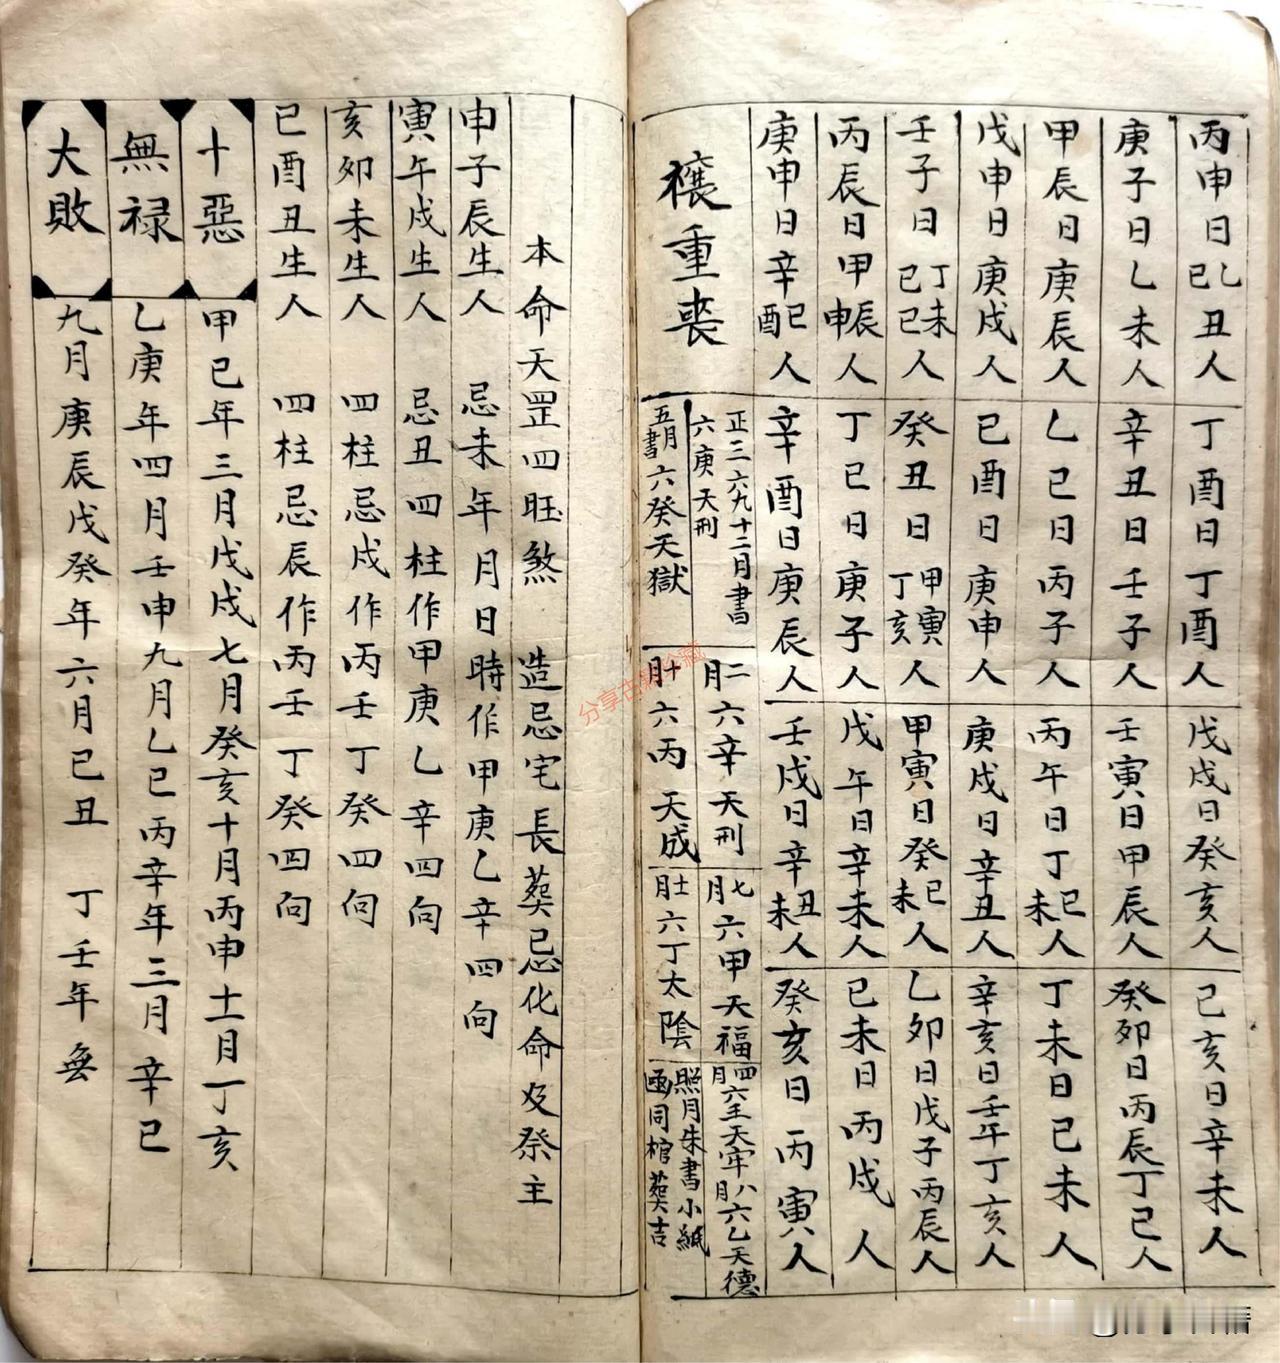 丙申日乙巳丑人
丁酉日丁酉人
戊戌日癸亥人
己亥日辛未人
庚子日乙未人
辛丑日壬子人
壬寅日甲辰人
癸卯日丙辰丁巳人
甲辰日庚辰人
乙巳日丙子人
丙午日丁巳未人
丁未日己未人
戊申日庚戌人
己酉日庚申人
庚戌日辛丑人
辛亥日壬午丁亥人
壬子日丁未己巳人
癸丑日甲寅丁亥人
甲寅日癸巳未人
乙卯日戊子丙辰人
丙辰日甲辰申人
丁巳日庚子人
戊午日辛未人
己未日丙戌人
庚申日辛巳酉人
辛酉日庚辰人
壬戌日辛丑未人
癸亥日丙寅人
禳重喪
正三六九十二月書
六庚天刑
二月六辛天刑
七月六甲天福
四月六壬天牢八月六乙天德
五月書六癸天獄
十月六丙天成
十一月六丁太陰
照月朱書小紙
函同棺葬吉
本命天罡四旺煞 造忌宅長葬忌化命及祭主
申子辰生人 忌未年月日時作甲庚乙辛四向
寅午戌生人 忌丑四柱作甲庚乙辛四向
亥卯未生人 四柱忌戌作丙壬丁癸四向
巳酉丑生人 四柱忌辰作丙壬丁癸四向
十惡 甲己年三月戊戌七月癸亥十月丙申十一月丁亥
無禄 乙庚年四月壬申九月乙巳丙辛年三月辛巳
大敗 九月庚辰戊癸年六月己丑 丁壬年無
分享古籍珍藏